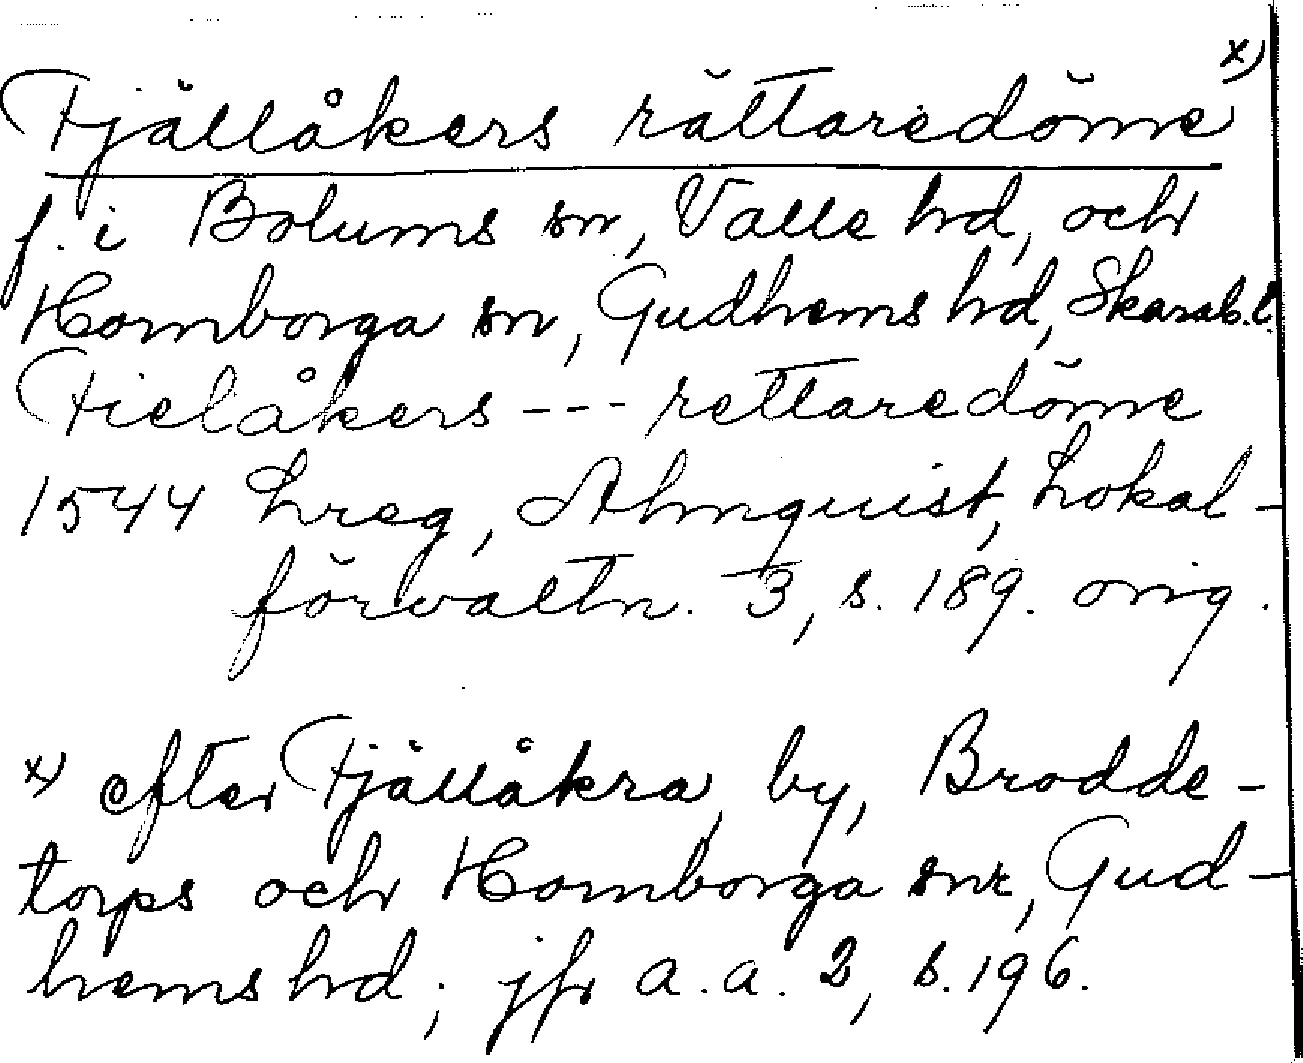 Fjällåkers rättaredöme x)
f. i Bolums sn, Valle hd, och
Hornborga sn, Gudhems hd, Skarab.l.
Fielåkers --- rettaredöme
1544 Lreg, Almquist, Lokal-
förvaltn. 3, s. 189. orig.
x) efter Fjällåkra, by, Brodde-
torps och Hornborga snr, Gud-
hems hd; jfr a.a. 2, s. 196.